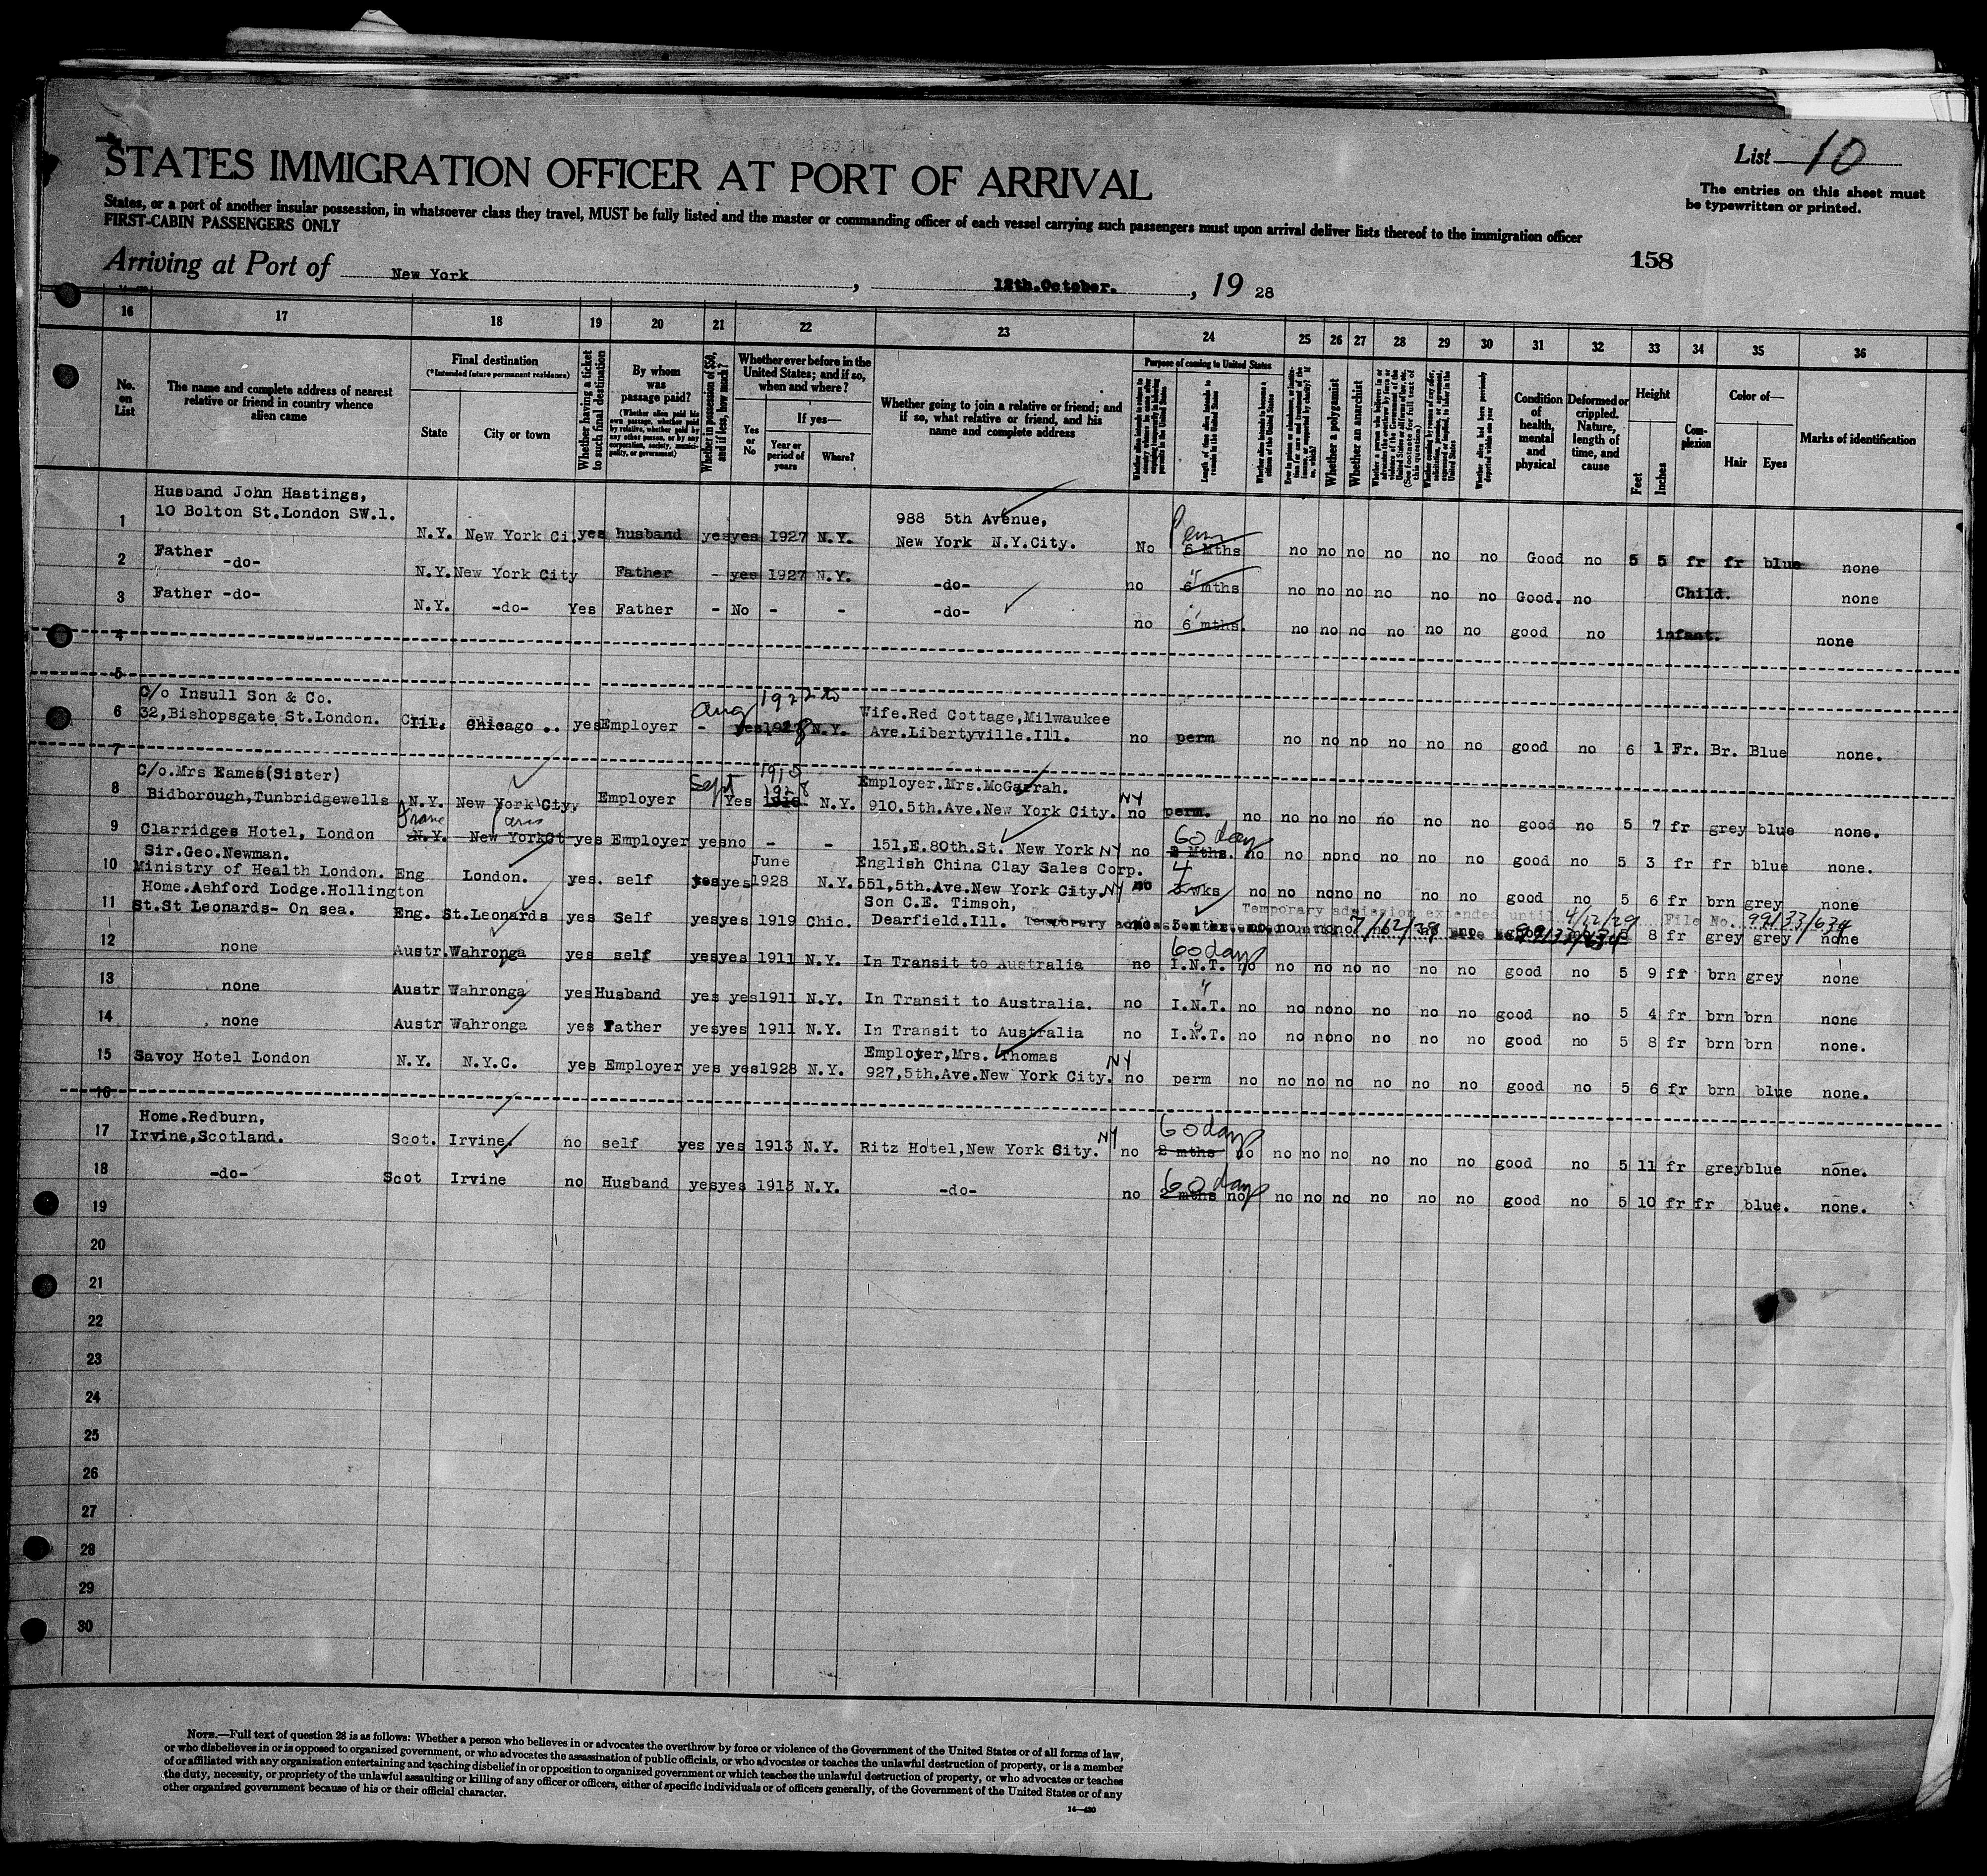 List 10
STATES IMMIGRATION OFFICER AT PORT OF ARRIVAL
The entries on this sheet must
be typewritten or printed.
States, or a port of another insular possession, in whatsoever class they travel, MUST be fully listed and the master or commanding officer of each vessel carrying such passengers must upon arrival deliver lists thereof to the immigration officer
FIRST-CABIN PASSENGERS ONLY
158
Arriving at Port of New York, 12th.October., 19 28
16 17 18 19 20 21 22 23 24 25 26 27 28 29 30 31 32 33 34 35 36
No. on List
The name and complete address of nearest relative or friend in country whence alien came
Final destination
(*Intended future permanent residence)
State
City or town
Whether having a ticket to such final destination
By whom was passage paid?
(Whether alien paid his own passage, whether paid by relative, whether paid by any other person, or by any corporation, society, municipality, or government)
Whether in possession of $50, and if less, how much?
Whether ever before in the United States; and if so, when and where?
Yes or No
If yes—
Year or period of years
Where?
Whether going to join a relative or friend; and if so, what relative or friend, and his name and complete address
Purpose of coming to United States
Length of time alien intends to remain in the United States
Whether alien intends to become a citizen of the United States
Whether a polygamist
Whether an anarchist
Whether alien had been previously deported within one year
Condition of health, mental and physical
Deformed or crippled. Nature, length of time, and cause
Height
Feet
Inches
Complexion
Color of—
Hair
Eyes
Marks of identification
1 Husband John Hastings,
10 Bolton St.London SW.1. N.Y. New York Ci. yes husband yes yes 1927 N.Y. 988 5th Avenue,
New York N.Y.City. No Perm 6 Mths no no no no no no Good no 5 5 fr fr blue none
2 Father -do- N.Y. New York City Father - yes 1927 N.Y. -do- no " 6 mths no no no no no no Good. no Child. none
3 Father -do- N.Y. -do- Yes Father - No - - -do- no " 6 mths. no no no no no no good no infant. none
4
5
6 C/o Insull Son & Co.
32,Bishopsgate St.London. Ill. Chicago .. yes Employer - Aug yes 1928 N.Y. Wife.Red Cottage,Milwaukee
Ave.Libertyville.Ill. no perm no no no no no no good no 6 1 Fr. Br. Blue none.
7
8 C/o.Mrs Eames(Sister)
Bidborough,Tunbridgewells N.Y. New York City, Employer Sept Yes 1915 1928 N.Y. Employer.Mrs.McGarrah.
910.5th.Ave.New York City. NY no perm. no no no no no no no good no 5 7 fr grey blue none.
9 Clarridges Hotel, London France Paris N.Y. New YorkCt yes Employer yes no - - 151,E.80th.St. New York NY no 60 days 2 Mths. no no no no no no no good no 5 3 fr fr blue none.
10 Sir.Geo.Newman.
Ministry of Health London. Eng London. yes. self yes yes June 1928 N.Y. English China Clay Sales Corp.
551,5th.Ave.New York City. NY no 4 wks no no no no no no no good no 5 6 fr brn grey none
11 Home.Ashford Lodge.Hollington
St.St Leonards- On sea. Eng. St.Leonards yes Self yes yes 1919 Chic. Son C.E. Timson,
Dearfield.Ill. 5 8 fr grey grey none
Temporary admission extended until 4/12/29 File No. 99133/634
12 none Austr. Wahronga yes self yes yes 1911 N.Y. In Transit to Australia no 60 days I.N.T. no no no no no no no good no 5 9 fr brn grey none
13 none Austr Wahronga yes Husband yes yes 1911 N.Y. In Transit to Australia. no " I.N.T. no no no no no no no good no 5 4 fr brn brn none
14 none Austr Wahronga yes Father yes yes 1911 N.Y. In Transit to Australia no " I.N.T. no no no no no no no good no 5 8 fr brn brn none.
15 Savoy Hotel London N.Y. N.Y.C. yes Employer yes yes 1928 N.Y. Employer,Mrs. Thomas
927,5th.Ave.New York City. NY no perm no no no no no no no good no 5 6 fr brn blue none.
16
17 Home.Redburn,
Irvine,Scotland. Scot. Irvine. no self yes yes 1913 N.Y. Ritz Hotel,New York City. NY no 60 days 2 mths no no no no no no no good no 5 11 fr grey blue none.
18 -do- Scot Irvine no Husband yes yes 1913 N.Y. -do- no 60 days 2 mths no no no no no no no good no 5 10 fr fr blue. none.
19
20
21
22
23
24
25
26
27
28
29
30
NOTE.—Full text of question 28 is as follows: Whether a person who believes in or advocates the overthrow by force or violence of the Government of the United States or of all forms of law,
or who disbelieves in or is opposed to organized government, or who advocates the assassination of public officials, or who advocates or teaches the unlawful destruction of property, or is a member
of or affiliated with any organization entertaining and teaching disbelief in or opposition to organized government or which teaches the unlawful destruction of property, or who advocates or teaches
the duty, necessity, or propriety of the unlawful assaulting or killing of any officer or officers, either of specific individuals or of officers generally, of the Government of the United States or of any
other organized government because of his or their official character.
14—430